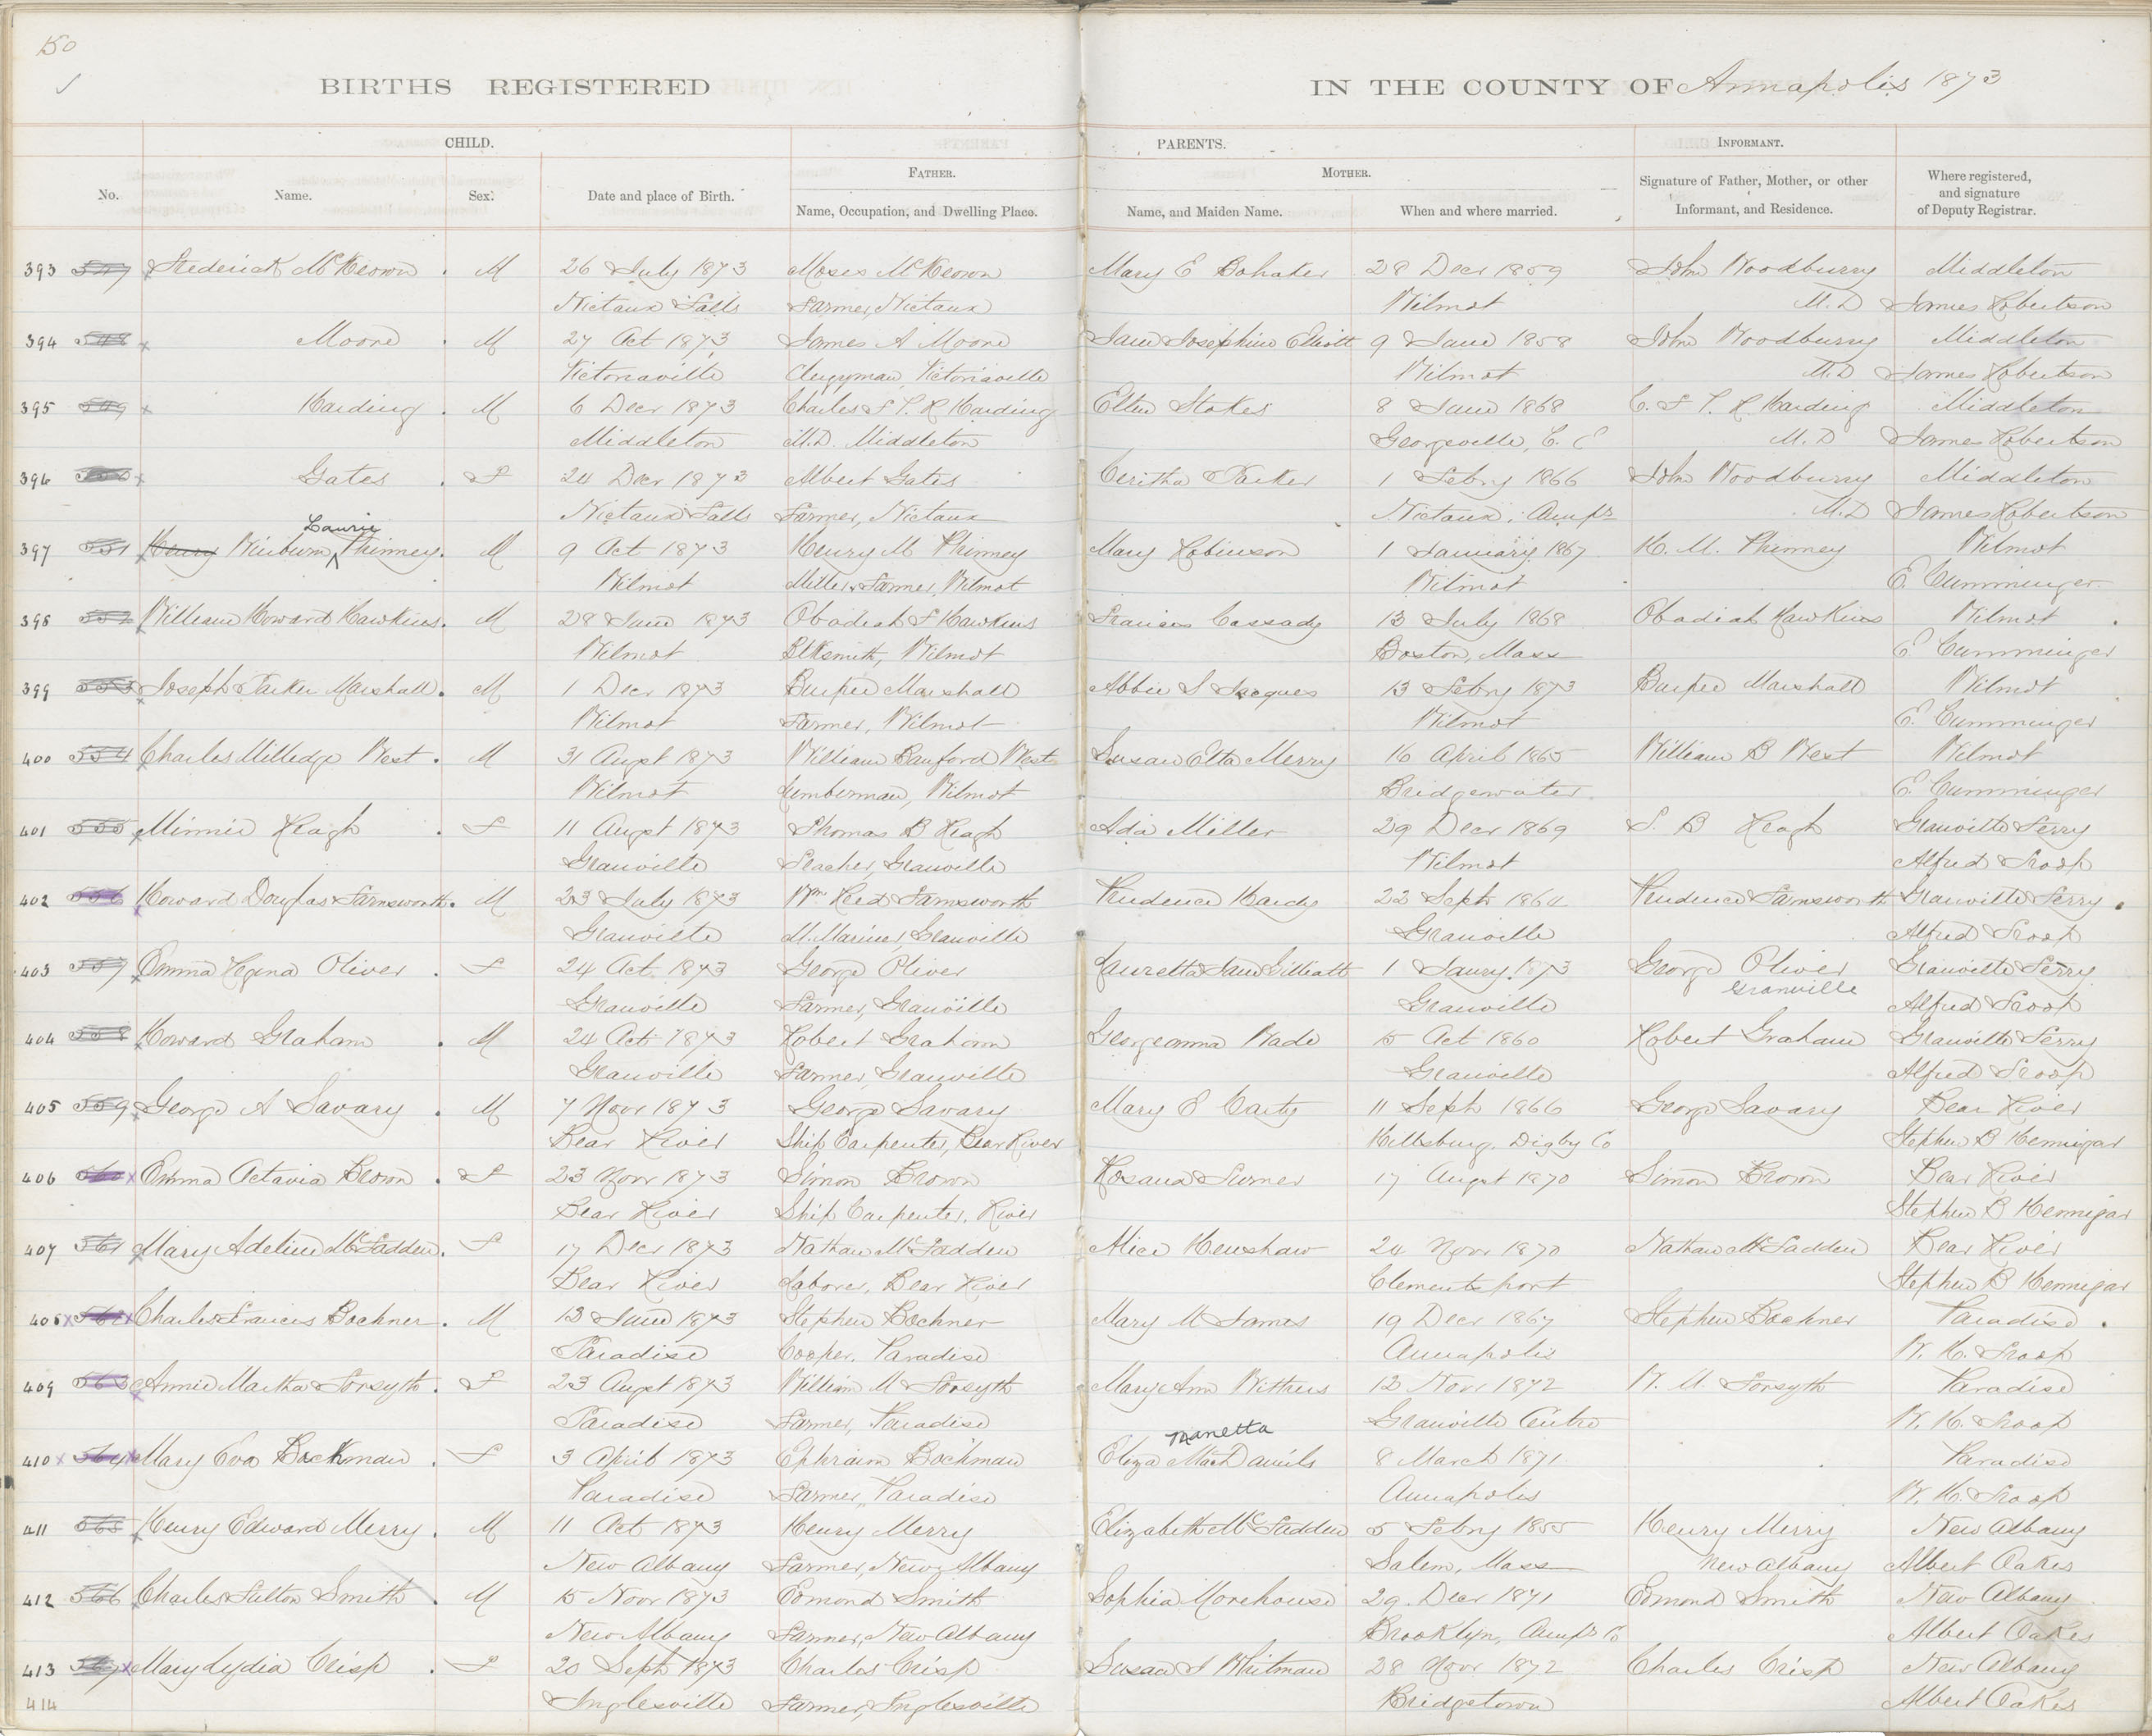 150
BIRTHS REGISTERED IN THE COUNTY OF Annapolis 1873
CHILD. PARENTS. INFORMANT.
FATHER. MOTHER.
No. Name. Sex. Date and place of Birth. Name, Occupation, and Dwelling Place. Name, and Maiden Name. When and where married. Signature of Father, Mother, or other Informant, and Residence. Where registered, and signature of Deputy Registrar.
393 547 Frederick McKeown . M 26 July 1873 Moses McKeown Mary E Bohaker 28 Decr 1859 John Woodburry Middleton
Nictaux Falls Farmer, Nictaux Wilmot M.D James Robertson
394 548 Moore . M 27 Oct 1873 James A Moore Jane Josephine Elliott 9 June 1858 John Woodburry Middleton
Victoriaville Clergyman, Victoriaville Wilmot M.D James Robertson
395 549 Harding . M 6 Decr 1873 Charles F T. R Harding Ellen Stokes 8 June 1868 C. F T. R Harding Middleton
Middleton M.D. Middleton Georgeville, C. E M. D James Robertson
396 550 Gates . F 24 Decr 1873 Albert Gates Ceritha Parker 1 Febry 1866 John Woodburry Middleton
Nictaux Falls Farmer, Nictaux Nictaux, Annps M.D James Robertson
Laurie
397 551 Henry Winburn Phinney . M 9 Oct 1873 Henry M Phinney Mary Robinson 1 January 1867 H. M. Phinney Wilmot
Wilmot Miller & Farmer, Wilmot Wilmot E. Cumminger
398 552 William Howard Hawkins . M 28 June 1873 Obadiah F Hawkins Frances Cassady 13 July 1868 Obadiah Hawkins Wilmot
Wilmot Blksmith, Wilmot Boston, Mass E Cumminger
399 553 Joseph Parker Marshall . M 1 Decr 1873 Burpee Marshall Abbie S Jacques 13 Febry 1873 Burpee Marshall Wilmot
Wilmot Farmer, Wilmot Wilmot E. Cumminger
400 554 Charles Milledge West . M 31 Augst 1873 William Banford West Susan Etta Merry 16 April 1865 William B West Wilmot
Wilmot Lumberman, Wilmot Bridgewater E. Cumminger
401 555 Minnie Heagh . F 11 Augst 1873 Thomas B Heagh Ada Miller 29 Decr 1869 T. B Heagh Granville Ferry
Granville Teacher, Granville Wilmot Alfred Troop
402 556 Howard Douglas Farnsworth . M 23 July 1873 Wm Reed Farnsworth Prudence Hardy 22 Sept 1864 Prudence Farnsworth Granville Ferry
Granville M. Mariner, Granville Granville Alfred Troop
403 557 Emma Regina Oliver . F 24 Oct 1873 George Oliver Lauretta Jane Gilliatt 1 Janry. 1873 George Oliver Granville Ferry
Granville Farmer, Granville Granville Granville Alfred Troop
404 558 Howard Graham . M 24 Oct 1873 Robert Graham Georgeanna Wade 15 Oct 1860 Robert Graham Granville Ferry
Granville Farmer, Granville Granville Alfred Troop
405 559 George A Savary . M 7 Novr 1873 George Savary Mary E Carty 11 Sept 1866 George Savary Bear River
Bear River Ship Carpenter, Bear River Hillsburg, Digby Co Stephen B Hennigar
406 560 Emma Octavia Brown . F 23 Novr 1873 Simon Brown Rosana Turner 17 Augst 1870 Simon Brown Bear River
Bear River Ship Carpenter, River Stephen B Hennigar
407 561 Mary Adeline McFadden . F 17 Decr 1873 Nathan McFadden Alice Henshaw 24 Novr 1870 Nathan McFadden Bear River
Bear River Laborer, Bear River Clementsport Stephen B Hennigar
408 562 Charles Francis Bochner . M 13 June 1873 Stephen Bochner Mary M James 19 Decr 1867 Stephen Bochner Paradise
Paradise Cooper, Paradise Annapolis W. H. Troop
409 563 Annie Martha Forsyth . F 23 Augst 1873 William M Forsyth Mary Ann Withers 12 Novr 1872 W. M. Forsyth Paradise
Paradise Farmer, Paradise Granville Centre W. H. Troop
Manetta
410 564 Mary Eva Bockman . F 3 April 1873 Ephraim Bockman Eliza Daniels 8 March 1871 Paradise
Paradise Farmer, Paradise Annapolis W. H. Troop
411 565 Henry Edward Merry . M 11 Oct 1873 Henry Merry Elizabeth McFadden 5 Febry 1855 Henry Merry New Albany
New Albany Farmer, New Albany Salem, Mass New Albany Albert Oakes
412 566 Charles Fulton Smith . M 15 Novr 1873 Edmond Smith Sophia Morehouse 29 Decr 1871 Edmond Smith New Albany
New Albany Farmer, New Albany Brooklyn, Annps Co Albert Oakes
413 567 Mary Lydia Crisp . F 20 Sept 1873 Charles Crisp Susan I Whitman 28 Novr 1872 Charles Crisp New Albany
414 Inglesville Farmer, Inglesville Bridgetown Albert Oakes